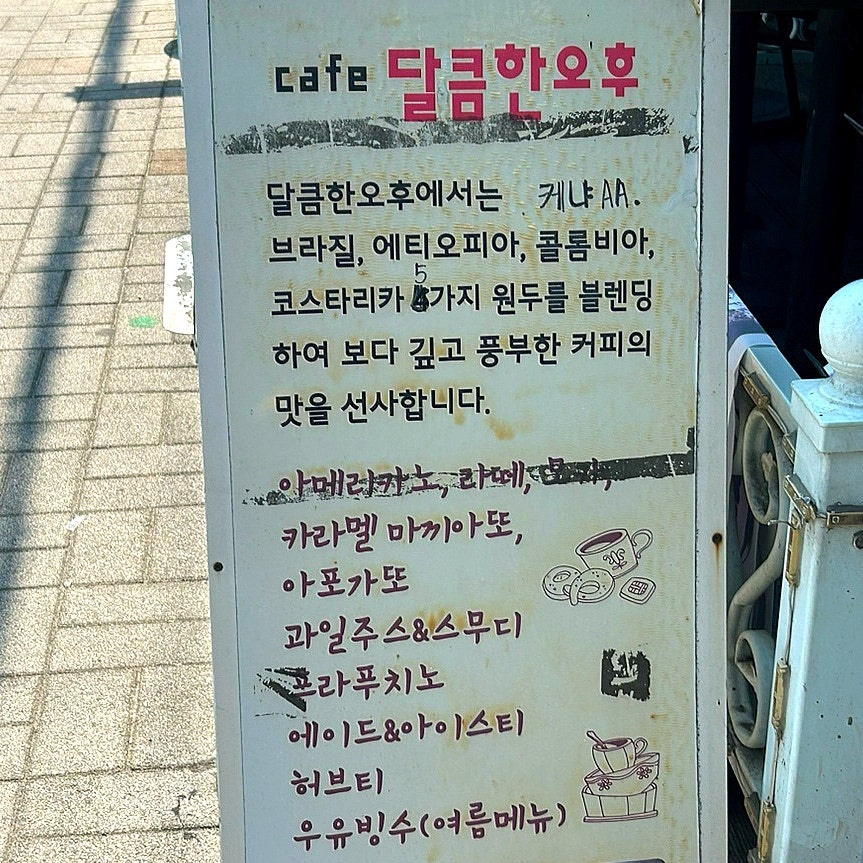 cafe 달콤한오후
달콤한오후에서는 케냐AA.
브라질, 에티오피아, 콜롬비아,
5
코스타리카 가지 원두를 블렌딩
하여 보다 깊고 풍부한 커피의
맛을 선사합니다.
아메리카노, 라떼,
카라멜 마끼아또,
아포가또
과일주스&스무디
프라푸치노
에이드&아이스티
허브티
우유빙수(여름메뉴)